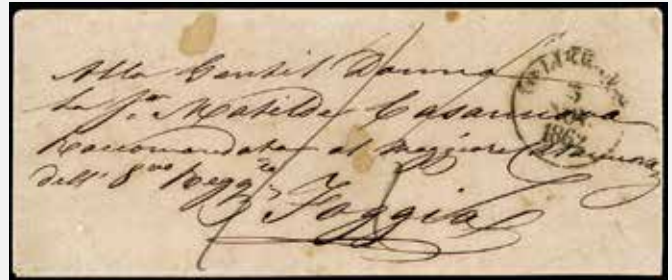 Alla Gentil Donna
la Sra. Matilde Casanova
Raccomandata al Maggiore
dell' 8vo Reggto
Foggia
5
1862